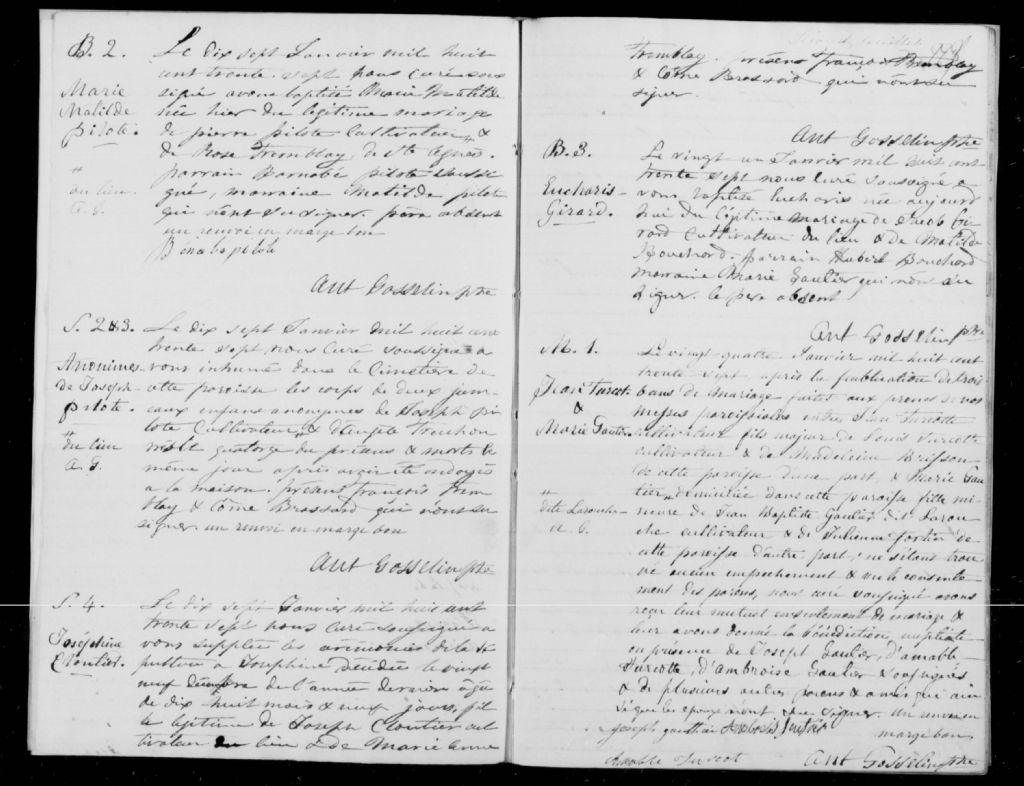 B. 2.
Marie
Matilde
pilote.
"
du lieu
A. G.
Le dix sept Janvier mil huit
cent trente sept nous curé sous
signé avons baptisé Marie Matilde
née hier du légitime mariage
de pierre pilote cultivateur " &
de Rose Tremblay, de Ste Agnès.
parrain Barnabé pilote soussi
gné, marraine Matilde pilote
qui n'ont su signer. père absent
un renvoi en marge bon
Bénabe pilote
Ant Gosselin ptre
S. 2&3.
Anonimes
de Joseph
pilote.
"
du lieu
A. G.
Le dix sept Janvier mil huit cent
trente sept nous curé soussigné a
vons inhumé dans le Cimetière de
cette paroisse les corps de deux jum-
eaux enfans anonymes de Joseph pi
lote Cultivateur " & d'Angele Truchon
nés le quatorze du présent & morts le
même jour après avoir été ondoyés
a la maison. présent françois Trem
blay & Côme Brassard qui n'ont su
signer un renvoi en marge bon
Ant Gosselin ptre
S. 4.
Joséphine
Cloutier.
Le dix sept Janvier mil huit cent
trente sept nous curé soussigné a
vons supplée les cérémonies de la
a Josephine décédée le vingt
neuf décembre de l'année dernière agée
de dix huit mois & neuf jours, fil
le légitime de Joseph Cloutier cul
tivateur du lieu & de Marie Anne
Tremblay. présens françois Tremblay
& Côme Brassard qui n'ont su
signer.
Ant Gosselin ptre
B. 3.
Eucharis
Girard.
Le vingt un Janvier mil huit cent
trente sept nous curé soussigné a
vons baptisé Eucharis née aujourd
hui du légitime mariage de Jacob Gi
rard Cultivateur du lieu & de Matilde
Bouchard. parrain Hubert Bouchard
marraine Marie Gautier qui n'ont su
signer. le père absent
Ant Gosselin ptre
M. 1.
Jean Turcot
&
Marie Gautier
"
dite Larouche
A. G.
Le vingt quatre Janvier mil huit cent
trente sept, après la publication de trois
bans de Mariage faite aux prones de nos
messes paroissiales entre Jean Turcotte
cultivateur fils majeur de Louis Turcotte
cultivateur & de Madeleine Brisson
de cette paroisse d'une part, & Marie Gau
tier " domiciliée dans cette paroisse fille mi
neure de Jean Baptiste Gautier dit Larou
che cultivateur & de Julienne fortin de
cette paroisse d'autre part; ne s'étant trou
vé aucun empechement & vu le consente
ment des parens, nous curé soussigné avons
reçu leur mutuel consentement de mariage &
leur avons donné la bénédiction nuptiale
en présence de Joseph Gautier, d'amable
Turcotte, d'ambroise Gautier soussignés
& de plusieurs autres parens & amis qui ain
si que les epoux n'ont su signer. un renvoi en
marge bon
joseph gauthier
amable Turcot
Ant Gosselin ptre